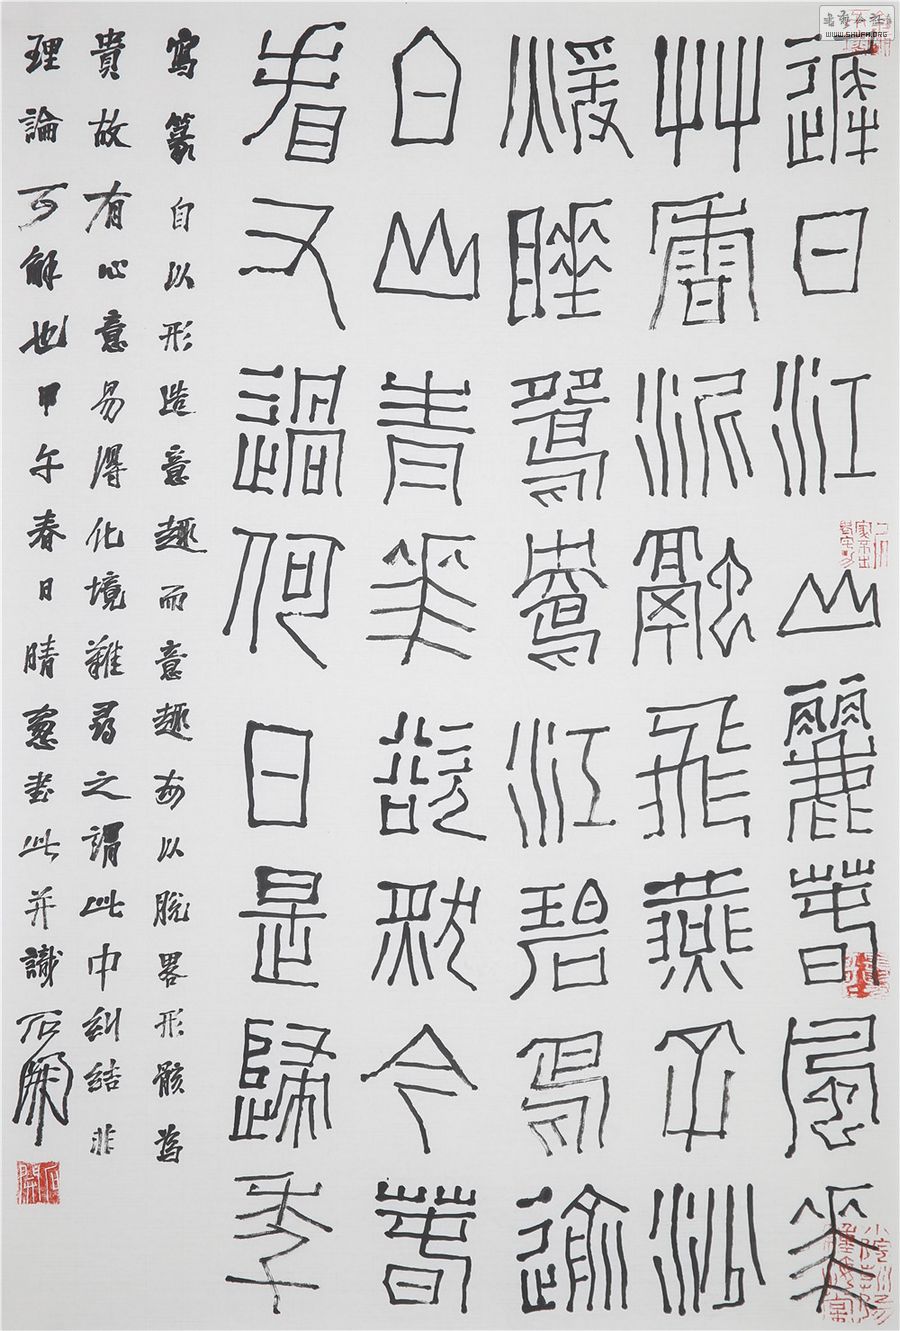 遲日江山麗春風花
艸香泥融飛燕子沙
煖睡鴛鴦江碧鳥逾
白山青花欲然今春
看又過何日是歸年
寫篆自以形造意趣而意趣每以脫畧形骸為
貴故有心意易得化境難尋之謂此中糾結非
理論可解也甲午春日晴窓書此并識石開
WWW.SHUFA.ORG